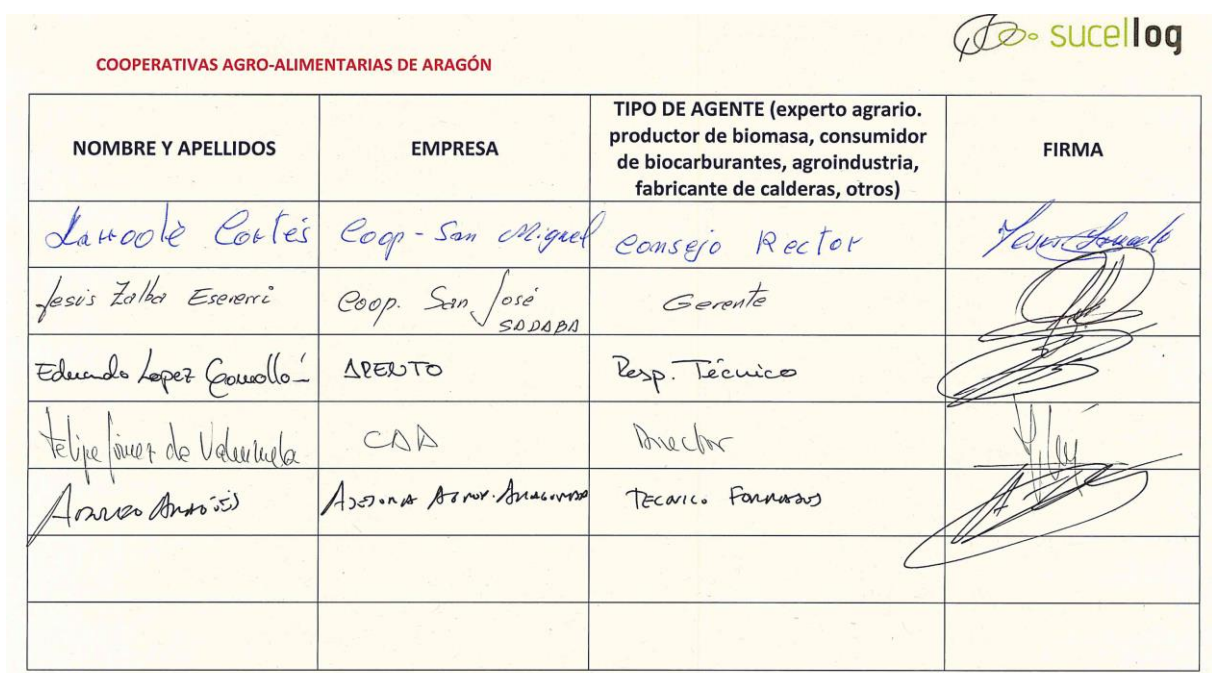 sucellog
COOPERATIVAS AGRO-ALIMENTARIAS DE ARAGÓN
NOMBRE Y APELLIDOS
EMPRESA
TIPO DE AGENTE (experto agrario.
productor de biomasa, consumidor
de biocarburantes, agroindustria,
fabricante de calderas, otros)
FIRMA
Larrodé Cortés Coop - San Miguel Consejo Rector
Jesús Zalba Coop. San José Gerente
SADABA
Eduardo Lopez APENTO Resp. Técnico
Felipe de Valenzuela CAA Director
Asesoria Tecnico